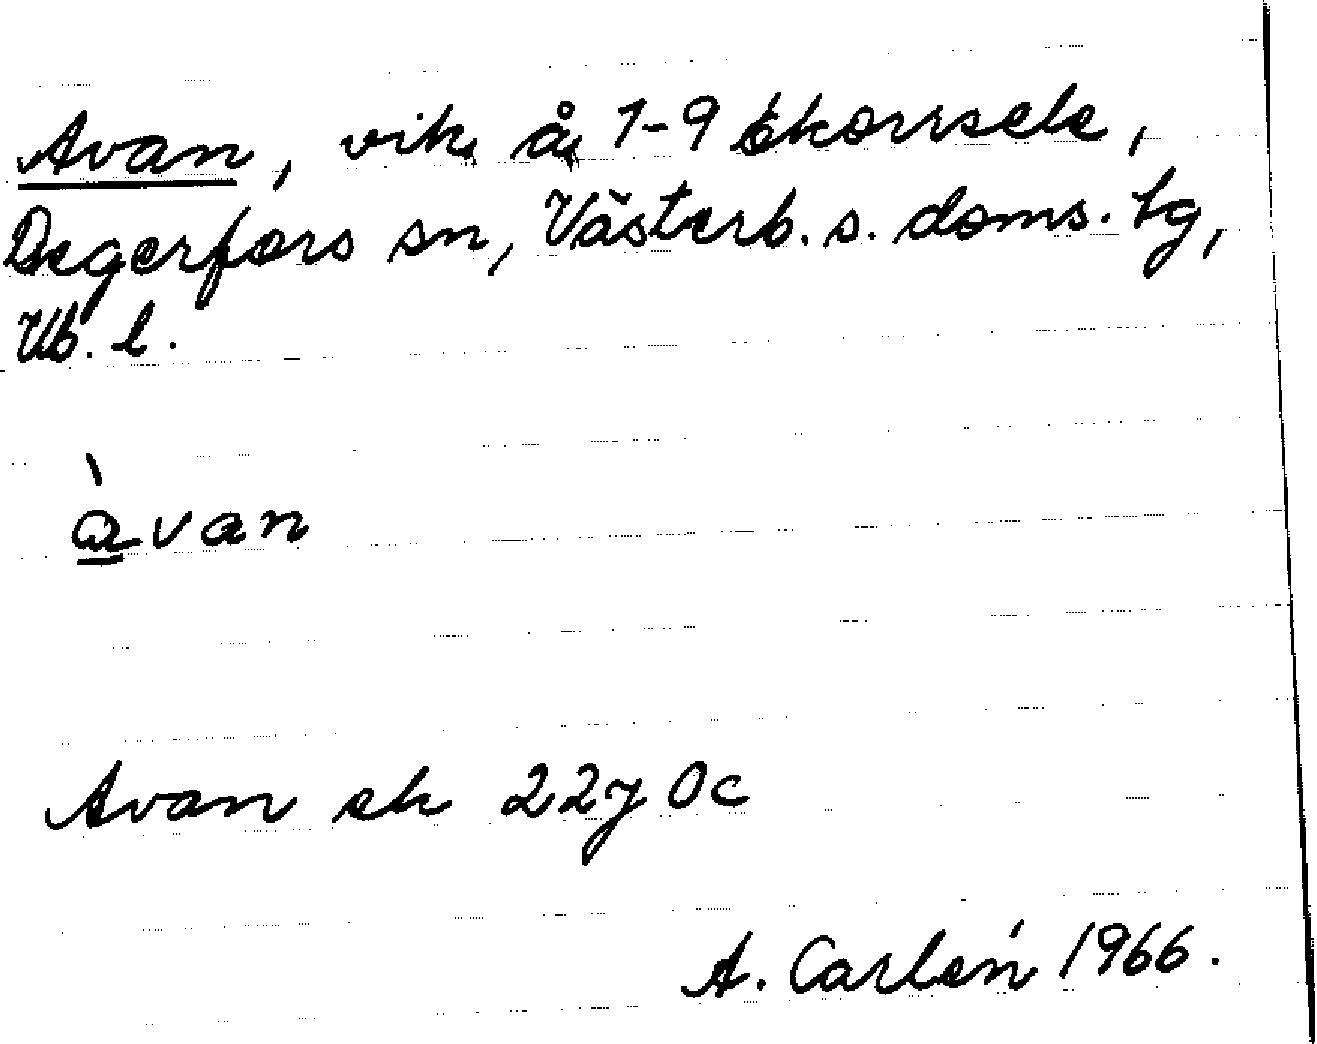 Avan, vik, å, 1-9 Ekorrsele,
Degerfors sn, Västerb. s. doms. tg,
Vb. l.
àvan
Avan ek 22y 0c
A. Carlén 1966.